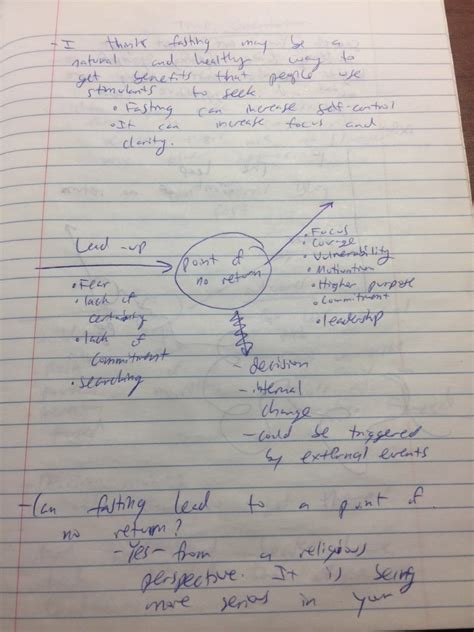 - I think fasting may be a
natural and healthy way to
get benefits that people use
stimulants to seek
• Fasting can increase self-control
• It can increase focus and
clarity.
Lead-up
• Fear
• lack of
certainty
• lack of
commitment
• Searching
point of
no return
• Focus
• Courage
• Vulnerability
• Motivation
• Higher purpose
• Commitment
• leadership
- decision
- internal
change
- could be triggered
by external events
- Can fasting lead to a point of
no return?
- Yes - from a religious
perspective. It is being
more serious in your